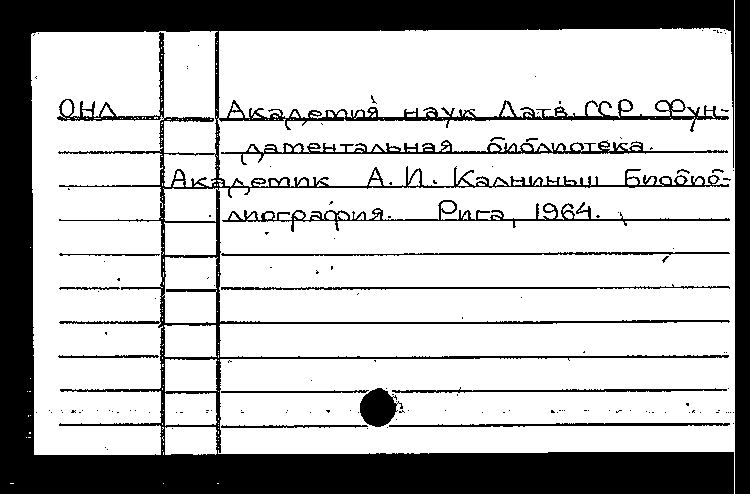 ОНЛ Академия наук Латв. ССР. Фун-
даментальная библиотека.
Академик А. И. Калниньш Биобиб-
лиография. Рига, 1964.